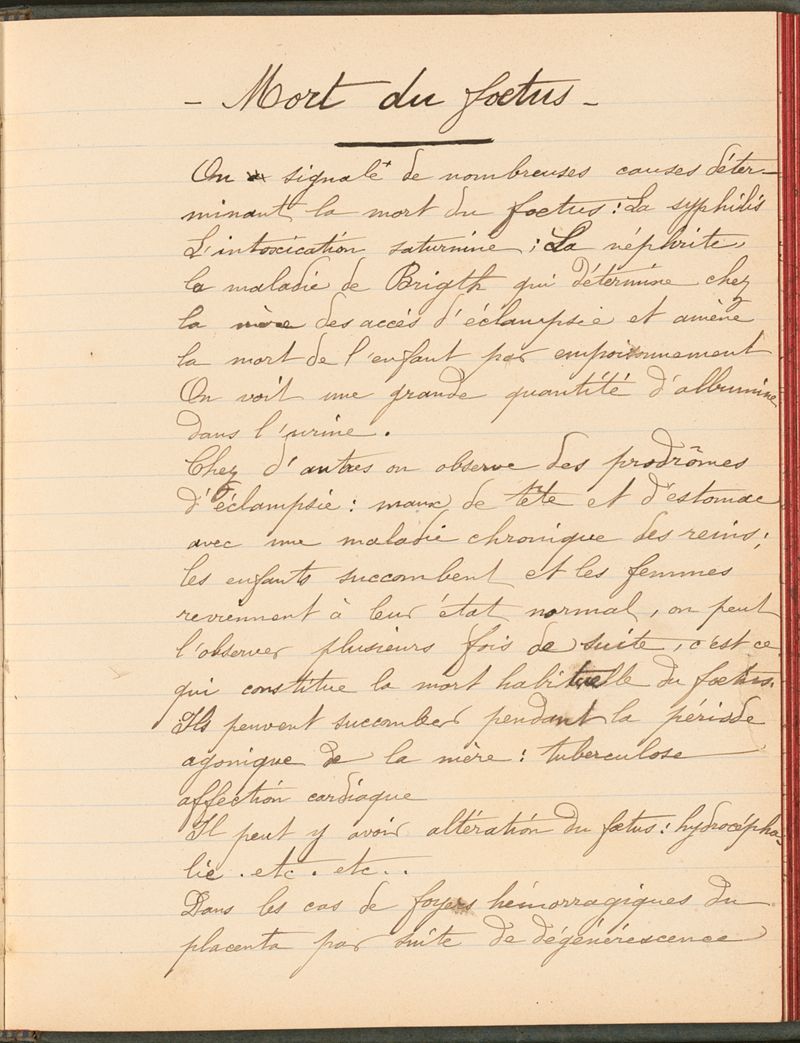 - Mort du foetus -
On a signalé de nombreuses causes déter-
minant la mort du foetus : La syphilis
L'intoxication saturnine ; La néphrite,
la maladie de Brigth qui détermine chez
la mère des accés d'éclampsie et amène
la mort de l'enfant par empoisonnement
On voit une grande quantité d'albumine
dans l'urine.
Chez d'autres on observe des prodrômes
d'éclampsie : maux de tête et d'estomac
avec une maladie chronique des reins ;
les enfants succombent et les femmes
reviennent à leur état normal, on peut
l'observer plusieurs fois de suite, c'est ce
qui constitue la mort habituelle du foetus.
Ils peuvent succomber pendant la période
agonique de la mère : tuberculose
affection cardiaque
Il peut y avoir altération du foetus : hydrocépha-
lie . etc . etc . .
Dans les cas de foyers hémorragiques du
placenta par suite de dégénérescence